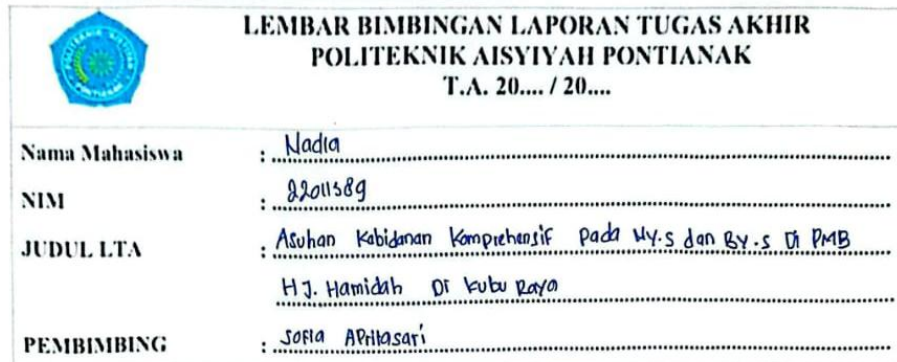 LEMBAR BIMBINGAN LAPORAN TUGAS AKHIR
POLITEKNIK AISYIYAH PONTIANAK
T.A. 20.... / 20....
Nama Mahasiswa : Nadia
NIM : 22011389
JUDUL LTA : Asuhan Kabidanan Komprehensif Pada Ny.s dan By.s Di PMB
HJ. Hamidah Di Kubu Raya
PEMBIMBING : Sofia Apritasari